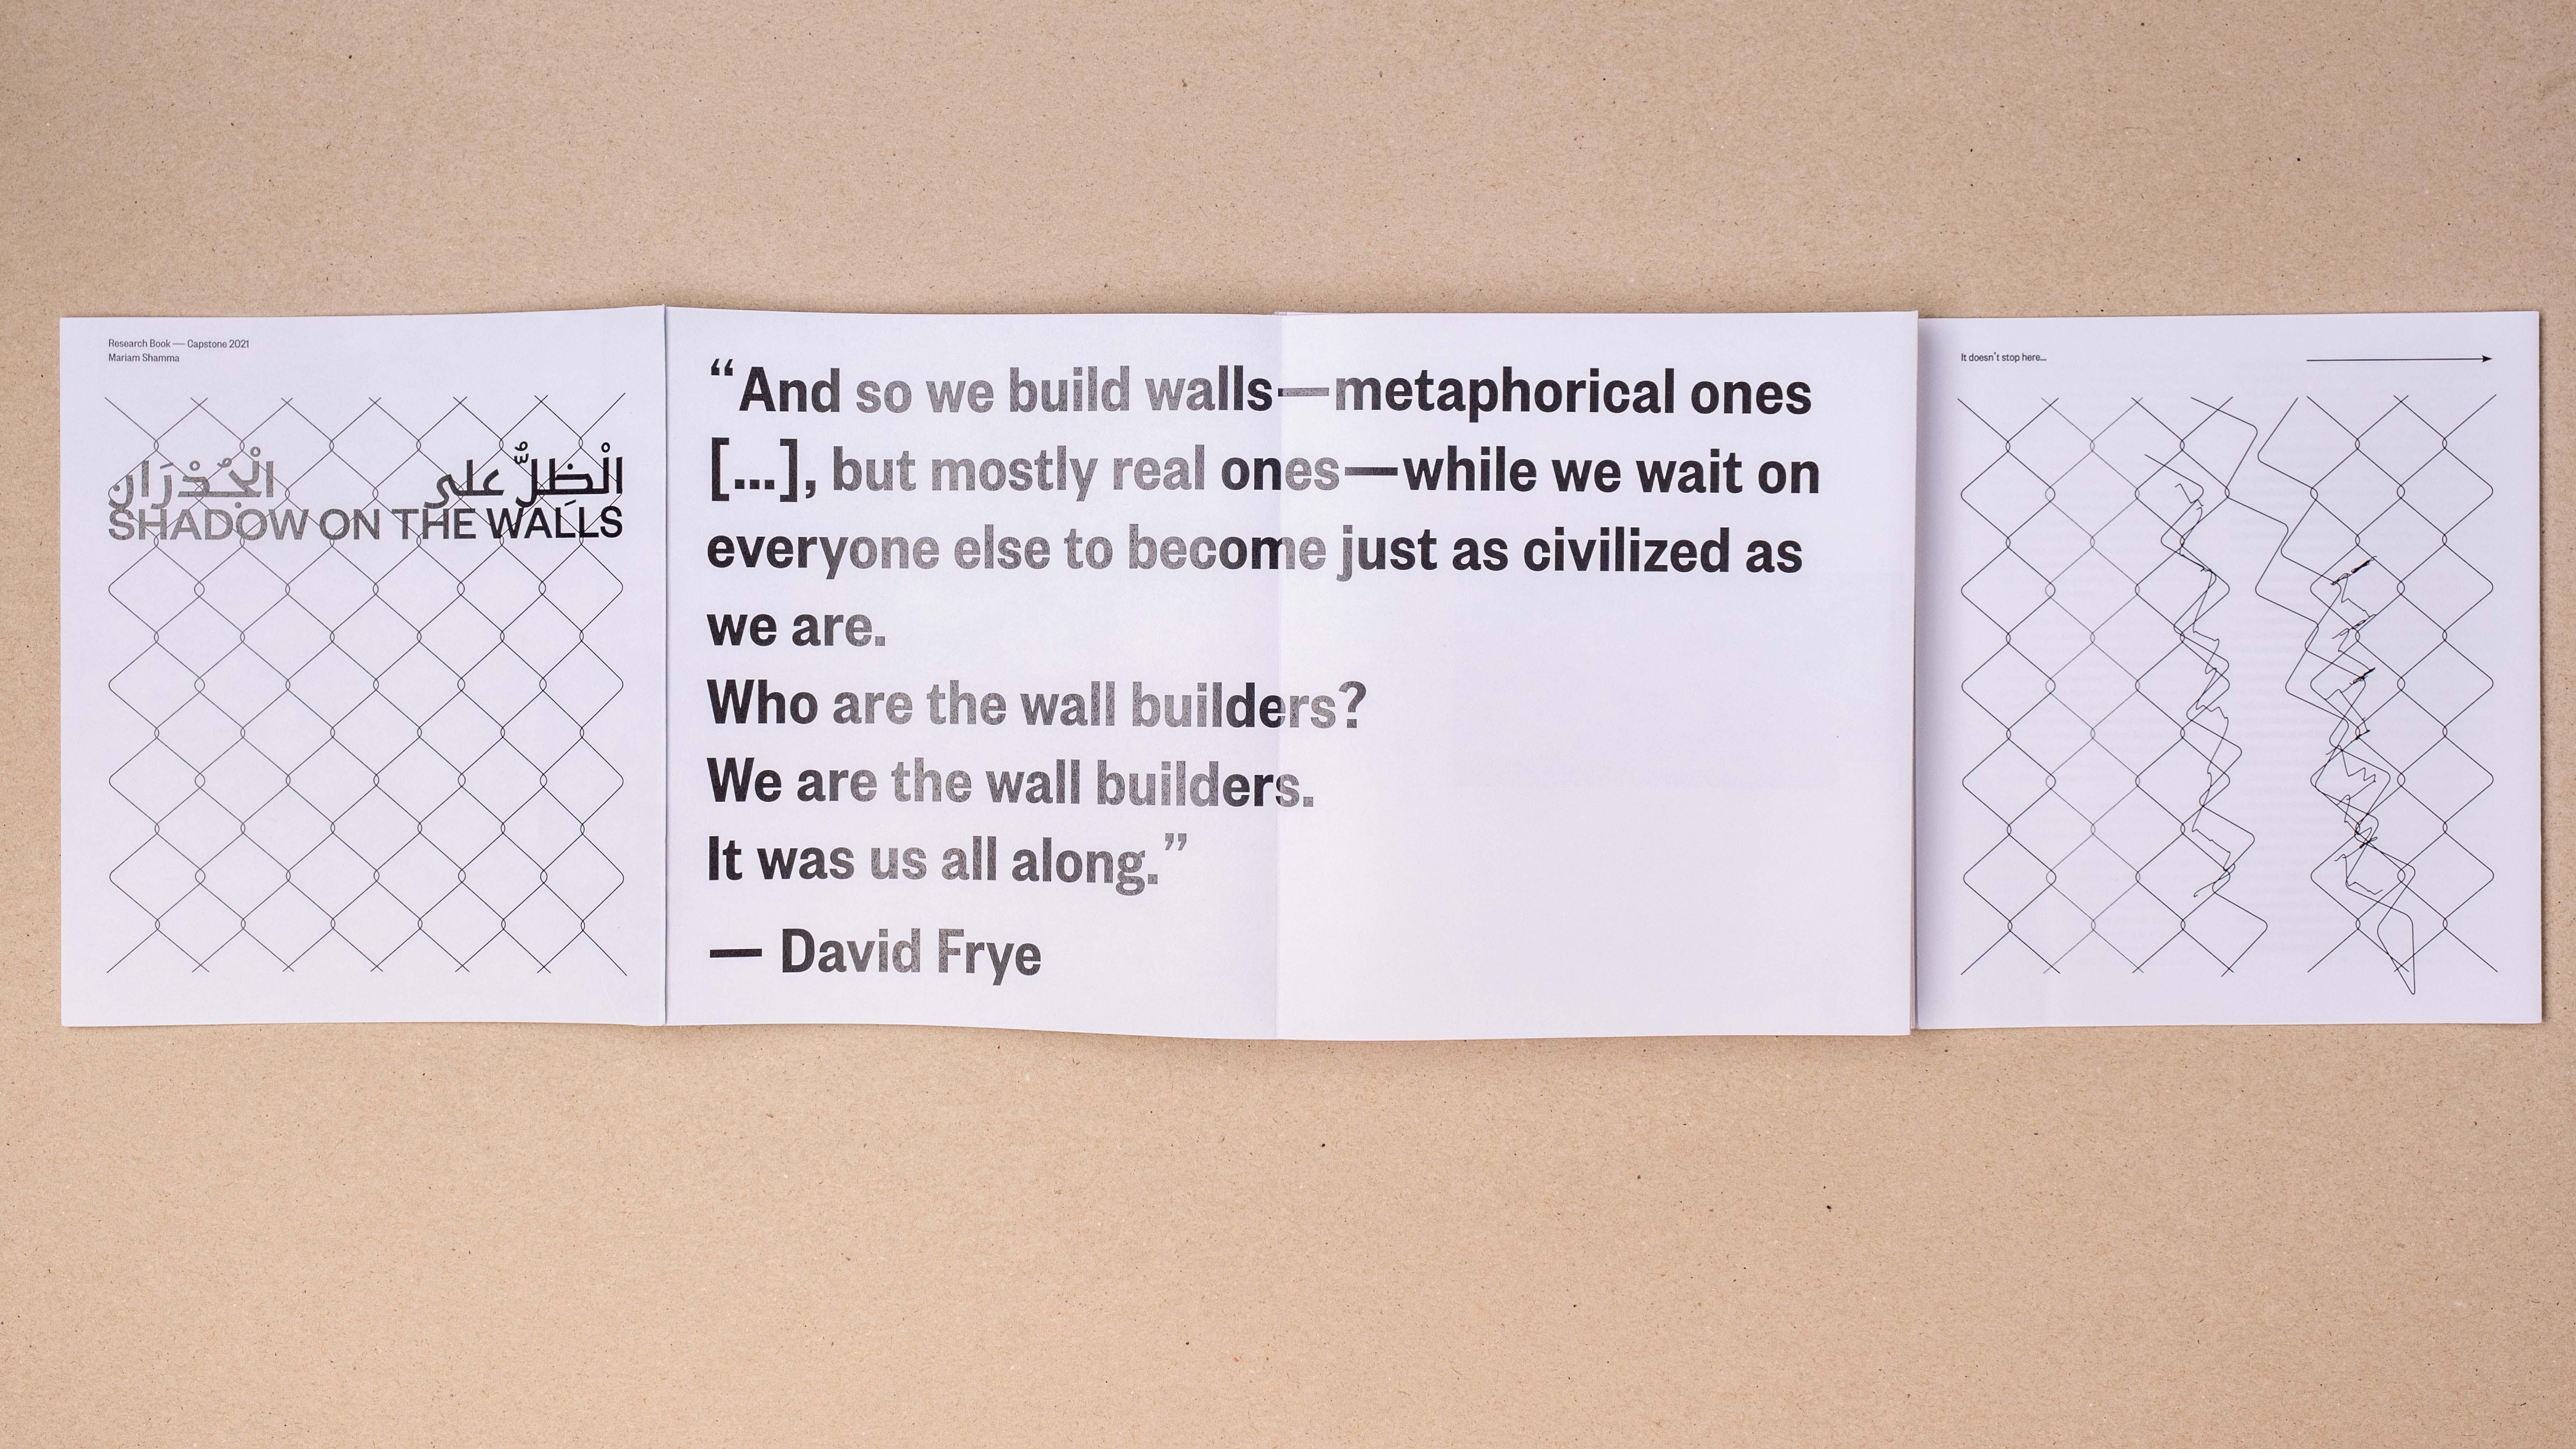 Research Book — Capstone 2021
Mariam Shamma
الْظِلُّ على الْجُدْرَان
SHADOW ON THE WALLS
“And so we build walls—metaphorical ones
[...], but mostly real ones—while we wait on
everyone else to become just as civilized as
we are.
Who are the wall builders?
We are the wall builders.
It was us all along.”
— David Frye
It doesn’t stop here...